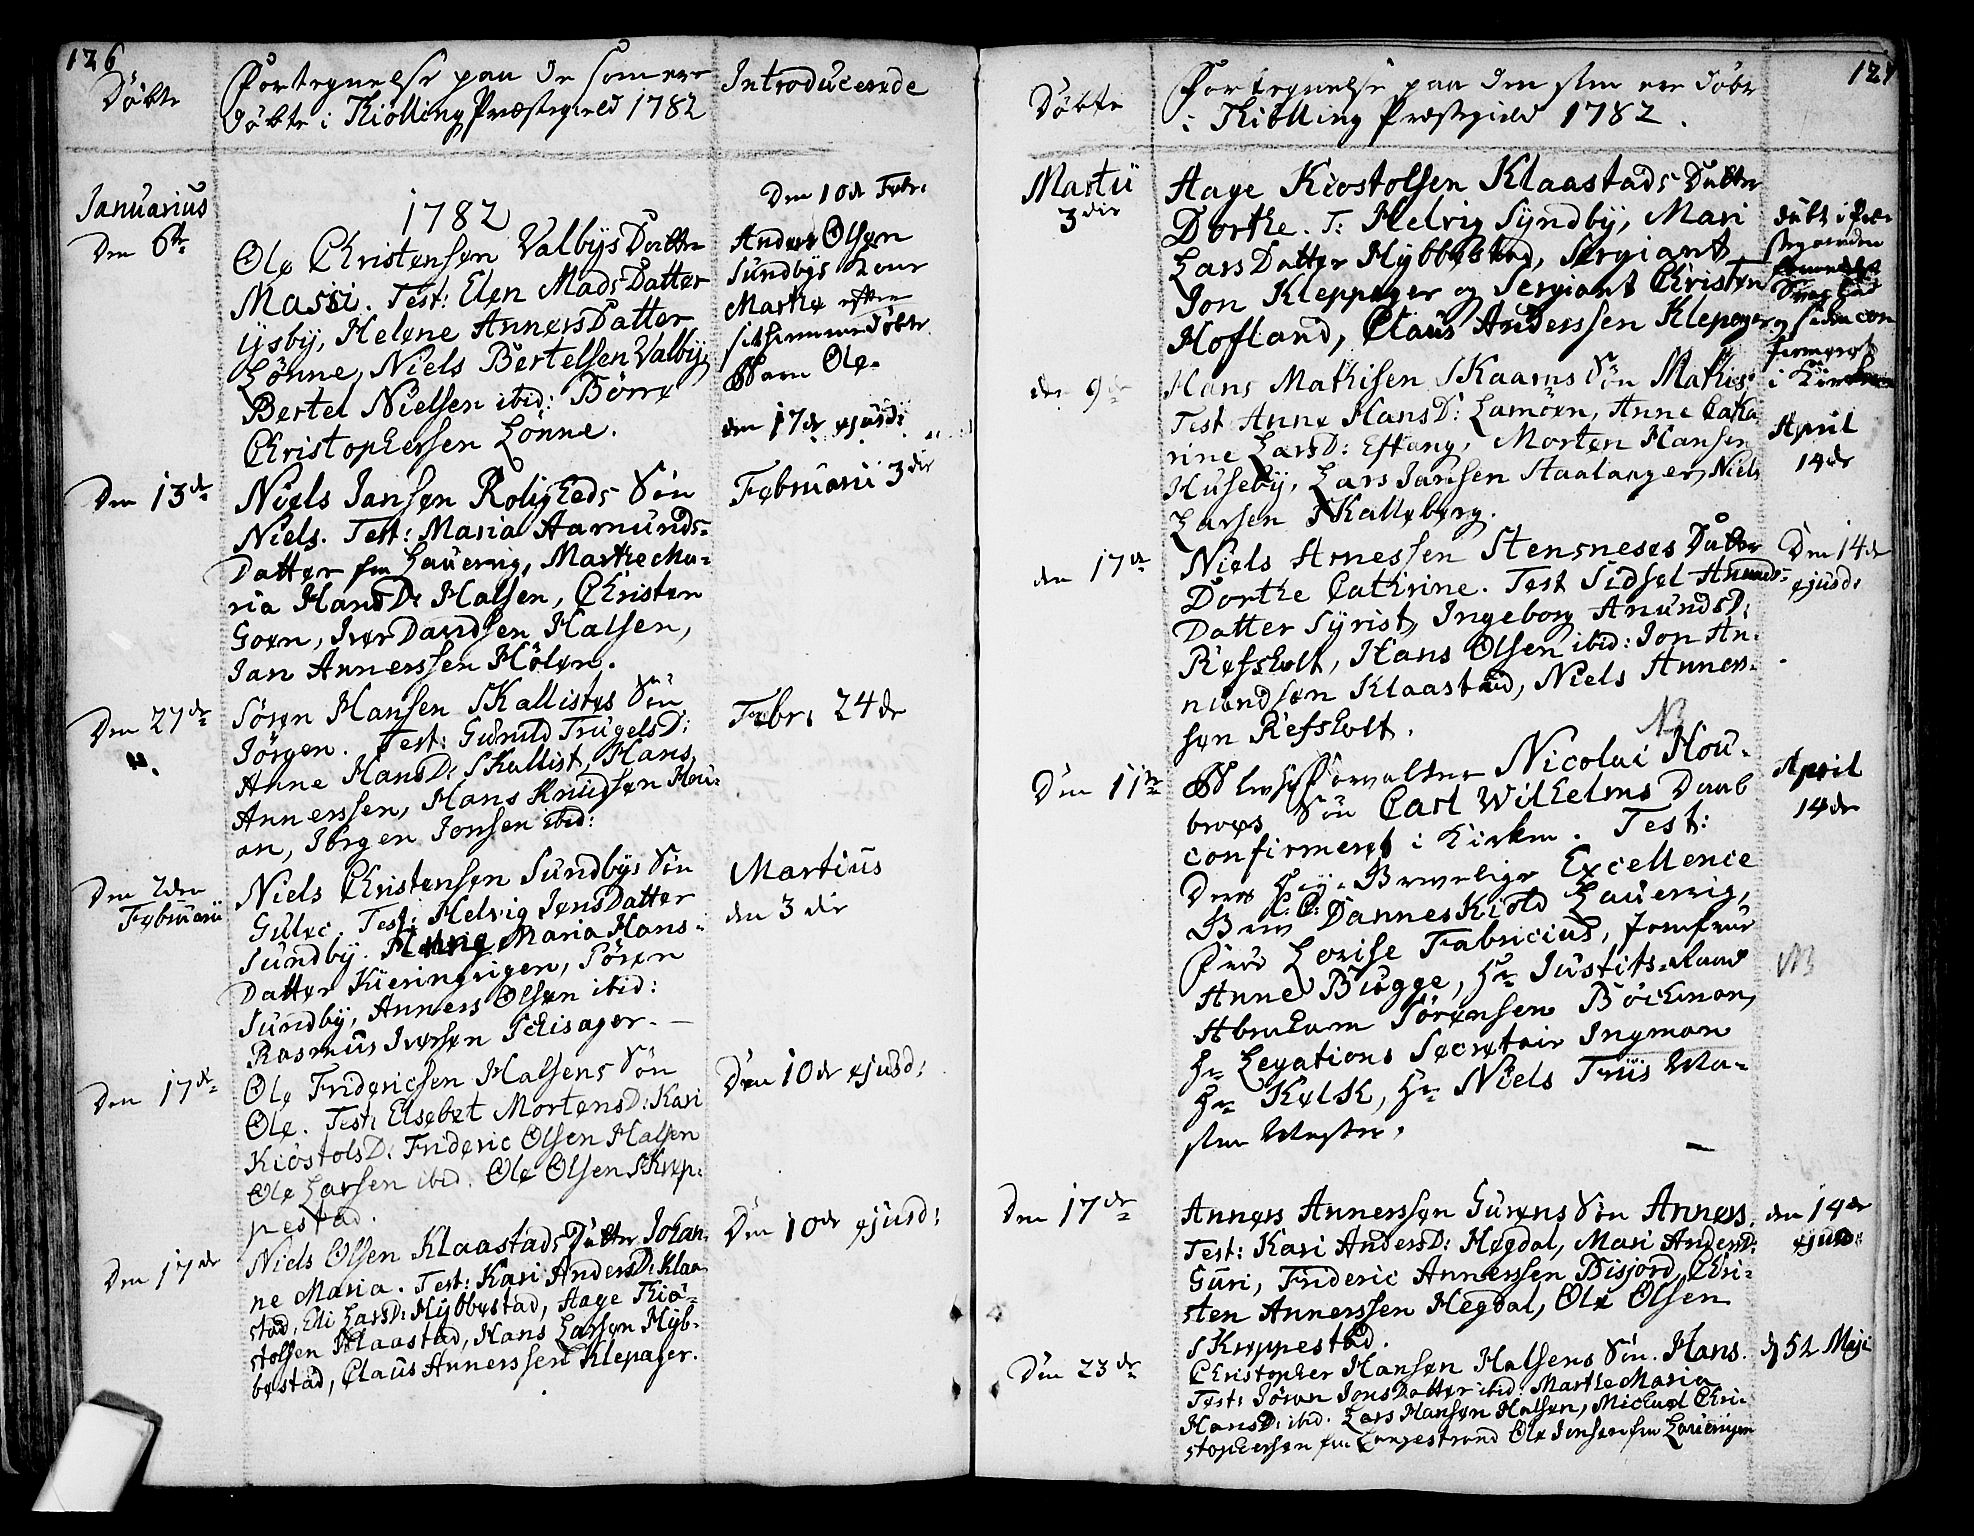 126
Döbte
Fortegnelse paa de som ere
Döbte i Kiölling Præstegield 1782
Introducerede
Januarius
Den 6te
1782
Ole Christensen Valbys Datter
Massi. Test: Elen Mads Datter
Ijsby, Helene Anners Datter
Lönne, Niels Bertelsen Valby,
Bertel Nielsen ibid: Börre
Christophersen Lönne.
Den 10de Febr:
Anders Olsen
Sundbys Kone
Marthe efter
sit hiemmedöbte
Barn Ole.
den 17de ejusd:
Den 13de
Niels Jansen Roligheds Sön
Niels. Test: Maria Aamunds-
Datter fra Laurvig, Marthe Ma-
ria HansD: Halsen, Christen
Goen, Iver Davidsen Halsen,
Jan Annerssen Hölen.
Februarii 3die
Den 27de
Sören Hansen Skallists Sön
Jörgen. Test: Gunild TrugelsD:
Anne HansD: Skallist, Hans
Annerssen, Hans Knudsen Hou-
an, Jörgen Jonsen ibid:
Febr: 24de
Den 2den
Februarii
Niels Christensen Sundbys Sön
Gulec. Test: Helvig Jens Datter
Sundby. Maria Hans-
Datter Kieringvigen, Sören
Sundby, Anners Olsen ibid:
Rasmus Iversen Schisager.
Martius
den 3die
Den 17de
Ole Fridericsen Halsens Sön
Ole. Test: Elsebet MortensD: Kari
KiöstolsD: Frideric Olsen Halsen
Ole Larsen ibid. Ole Olsen Skrep-
pestad.
Den 10de ejusd:
Den 17de
Niels Olsen Klaastads Datter Johan-
ne Maria. Test: Kari AndersD: Klaa-
stad, Eli LarsD: Hybbestad, Aage Kiö-
stolsen Klaastad, Hans Larsen Hyb-
bestad, Claus Annerssen Klepager.
Den 10de ejusd:
127
Döbte
Fortegnelse paa dem som ere döbte
i Kiölling Præstegield 1782.
Martii
3die
Aage Kiostolsen Klaastads Datter
Dorthe. T: Helvig Syndby, Mari
Lars Datter Hybbestad, Sergiant
Jon Kleppager og Sergiant Christen
Hofland, Claus Anderssen Klepager
döbt i Præ-
stegaarden
og siden con
firmeret
i Kirken
den 9de
Hans Mathisen Skaarns Sön Mathis:
Test Anne HansD: Lamöen, Anne Catha
rine LarsD: Eftang, Morten Hansen
Huseby, Lars Jansen Staalanger, Niels
Larsen Skalleberg.
April
14de
den 17de
Niels Arnessen Stensneses Datter
Dorthe Cathrine. Test Sidsel Amunds-
Datter Syrist, Ingeborg AnundsD:
Refsholt, Hans Olsen ibid: Jon An-
nundsen Klaastad, Niels Anners-
sen Refsholt.
Den 14de
ejusd:
NB
Den 11te
Forvalter Nicolai Hou-
broes Sön Carl Wilhelms Daab
confirmeret i Kirken. Test:
Deres Höy-Grevelige Excellence
Grev C: C: Danneskiold Laurvig,
Frue Lovise Fabricius, Jomfrue
Anne Bugge, Hr Justits-Raad
Abraham Sörensen Böckman,
Hr Legations Secretair Ingman
Hr Kolsk, Hr Niels Triis Wa-
ster.
April
14de
NB
Den 17de
Anners Annerssen Gurens Sön Anners.
Test: Kari AndersD: Hegdal, Mari AndersD:
Guri, Frideric Annerssen Disjord, Chri-
sten Annerssen Hegdal, Ole Olsen
Skreppestad.
den 14de
ejusd:
Den 23de
Christopher Hansen Halsens Sön. Hans.
Test: Jöran Jons Datter ibid: Marthe Maria
HansD: ibid. Lars Hansen Halsen, Michael Chri-
stophersen fra Langestrand Ole Jensen fra Laurvigen
d 5te Maji